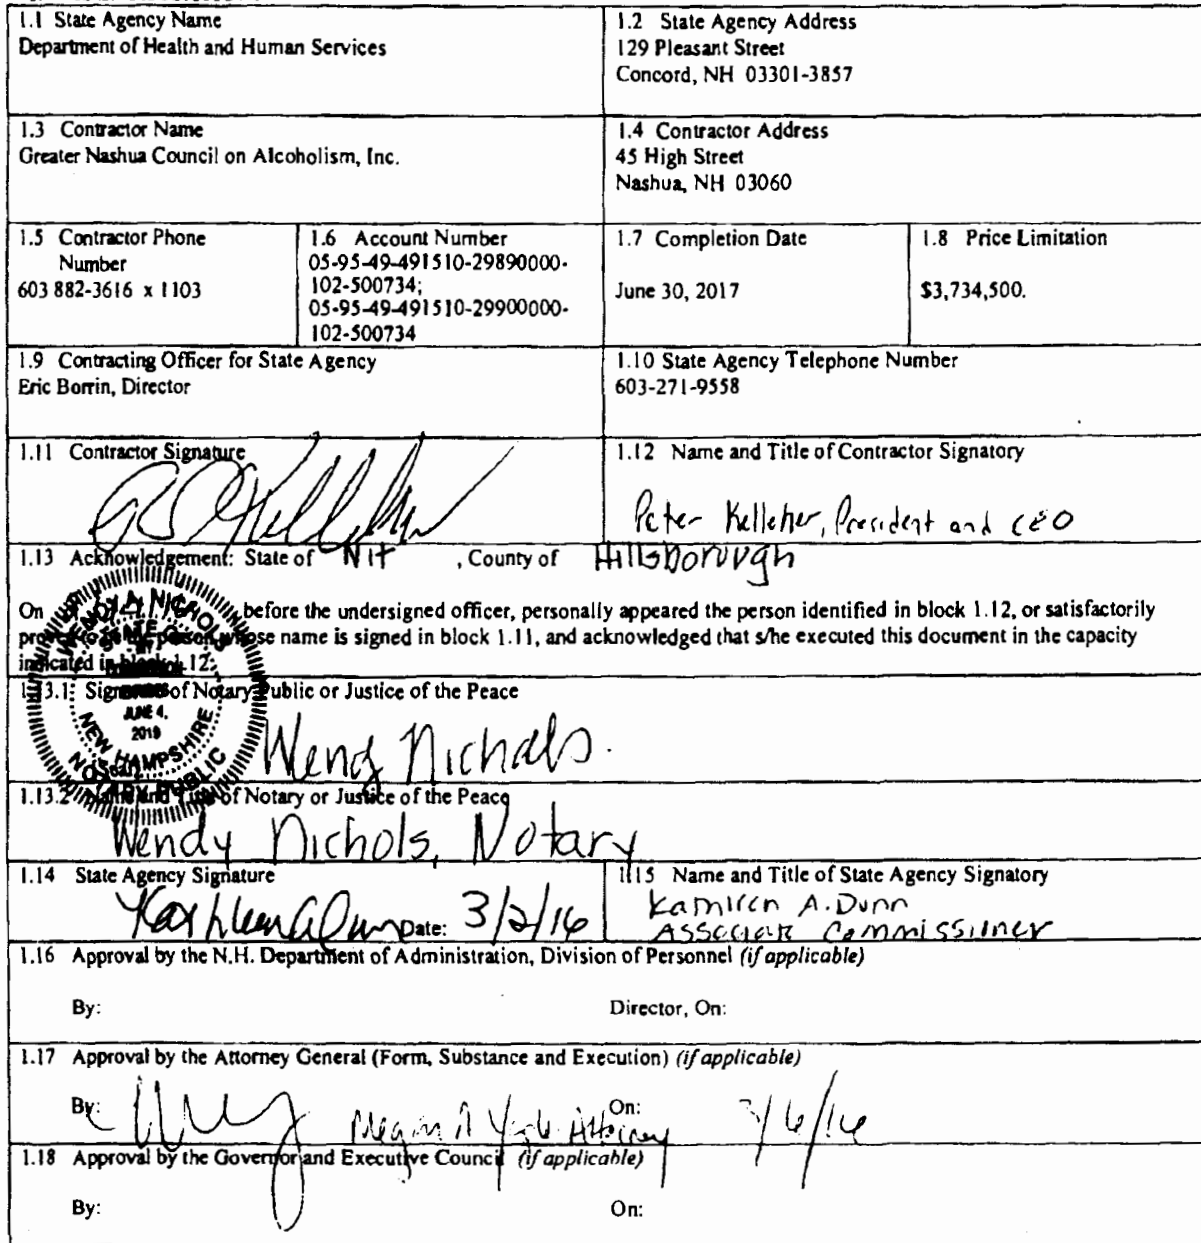 1.1 State Agency Name
Department of Health and Human Services
1.2 State Agency Address
129 Pleasant Street
Concord, NH 03301-3857
1.3 Contractor Name
Greater Nashua Council on Alcoholism, Inc.
1.4 Contractor Address
45 High Street
Nashua, NH 03060
1.5 Contractor Phone
Number
603 882-3616 x 1103
1.6 Account Number
05-95-49-491510-29890000-
102-500734;
05-95-49-491510-29900000-
102-500734
1.7 Completion Date
June 30, 2017
1.8 Price Limitation
$3,734,500.
1.9 Contracting Officer for State Agency
Eric Borrin, Director
1.10 State Agency Telephone Number
603-271-9558
1.11 Contractor Signature
1.12 Name and Title of Contractor Signatory
Peter Kelleher, President and CEO
1.13 Acknowledgement: State of NH , County of Hillsborough
On before the undersigned officer, personally appeared the person identified in block 1.12, or satisfactorily
proven to be the person whose name is signed in block 1.11, and acknowledged that s/he executed this document in the capacity
indicated in block 1.12.
WENDY A. NICHOLS
STATE
JUNE 4,
2019
NEW HAMPSHIRE
NOTARY PUBLIC
1.13.1 Signature of Notary Public or Justice of the Peace
[Seal]
Wendy Nichols
1.13.2 Name and Title of Notary or Justice of the Peace
Wendy Nichols, Notary
1.14 State Agency Signature
Date: 3/2/16
1.15 Name and Title of State Agency Signatory
Kathleen A. Dunn
Associate Commissioner
1.16 Approval by the N.H. Department of Administration, Division of Personnel (if applicable)
By: Director, On:
1.17 Approval by the Attorney General (Form, Substance and Execution) (if applicable)
By: Attorney On: 3/6/16
1.18 Approval by the Governor and Executive Council (if applicable)
By: On: